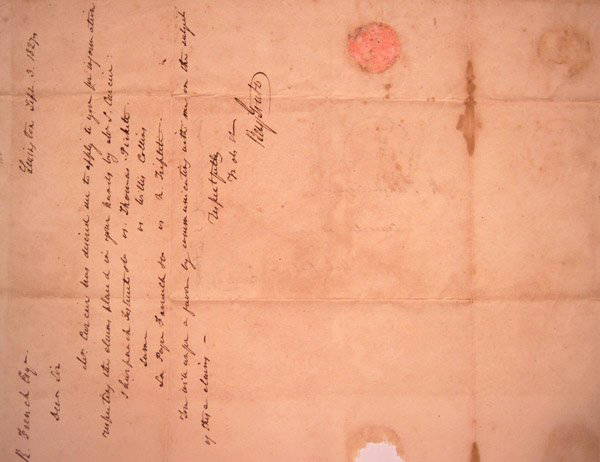 Lexington Sept 3. 1827.
R. French Esq
Dear Sir
Mr. Curcier has desired me to apply to you for information
respecting the claims placed in your hands by Mr. Curcier
vs. Thomas Pickett
Same vs Willis Collins
La Roque vs R Triplett
You will confer a favor by communicating with me on the subject
of these claims –
Respectfully
Yr ob St
Benj Gratz